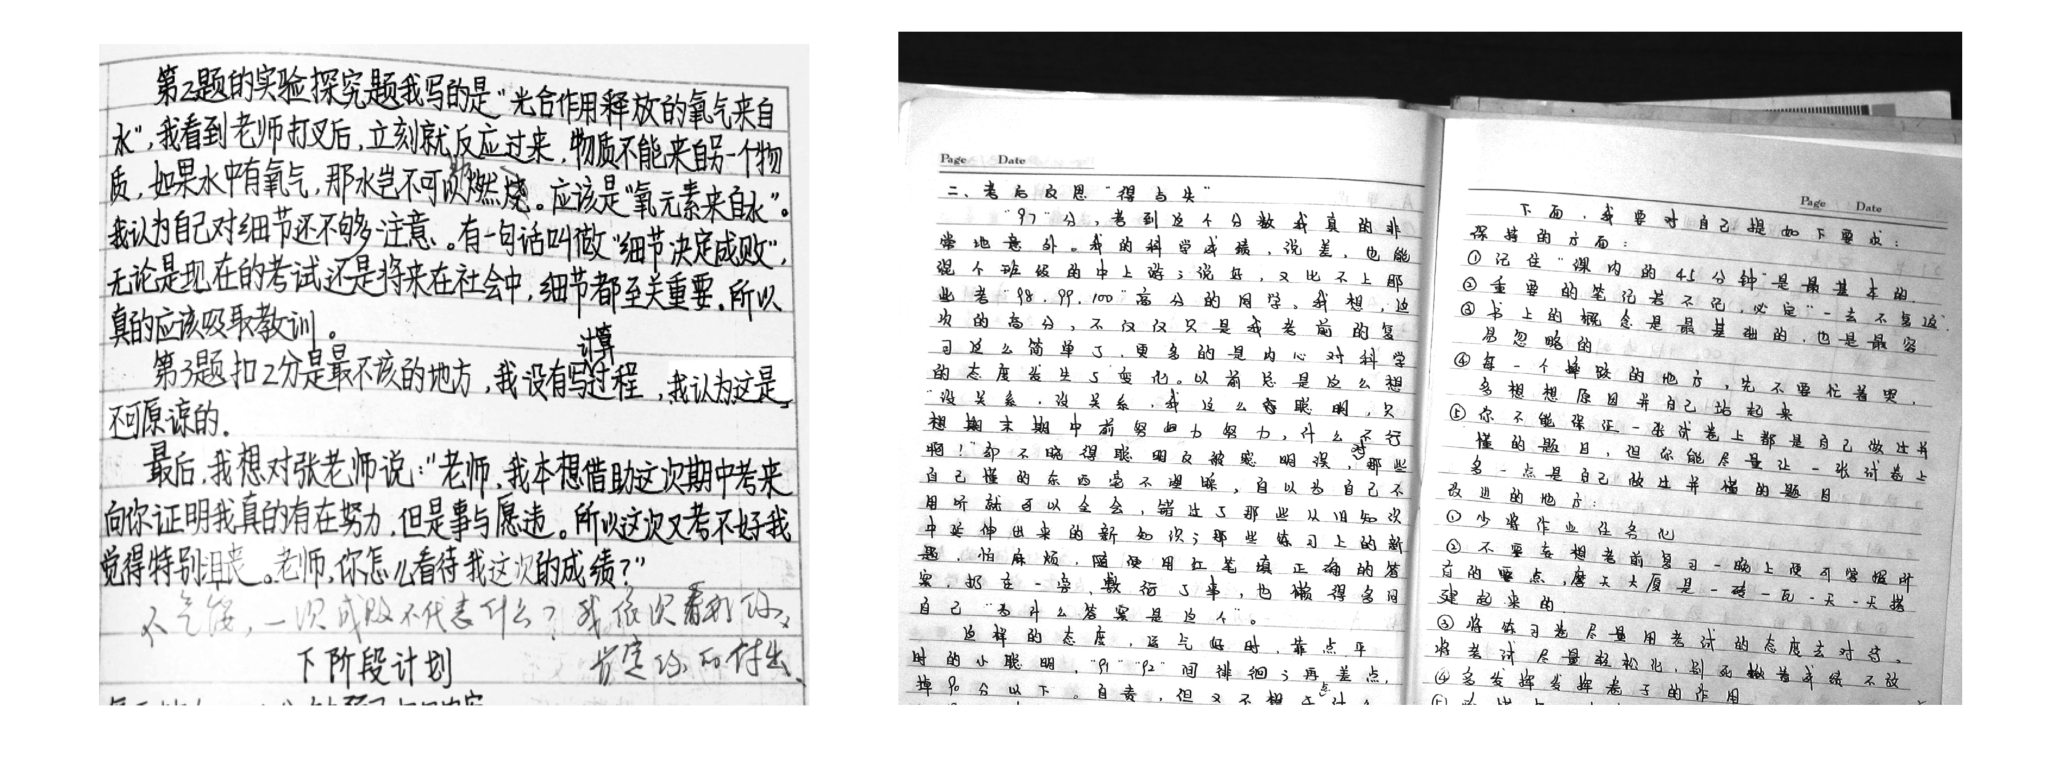 第2题的实验探究题我写的是“光合作用释放的氧气来自
水”,我看到老师打叉后,立刻就反应过来,物质不能来自另一个物
质,如果水中有氧气,那水岂不可以燃烧。应该是“氧元素来自水”。
我认为自己对细节还不够注意、。有一句话叫做“细节决定成败”,
无论是现在的考试还是将来在社会中,细节都至关重要。所以
真的应该吸取教训。
第3题扣2分是最不该的地方,我没有写计算过程,我认为这是
不可原谅的。
最后,我想对张老师说:“老师,我本想借助这次期中考来
向你证明我真的有在努力,但是事与愿违。所以这次又考不好我
觉得特别沮丧。老师,你怎么看待我这次的成绩?”
不气馁,一次成败不代表什么?我依次看到你
肯定你的付出
下阶段计划
Page Date
二、考后反思“得与失”
“97”分,考到这个分数我真的非
常地意外。我的科学成绩,说差,也能
混个班级的中上游;说好,又比不上那
些考“98、99、100”高分的同学。我想,这
次的高分,不仅仅只是我考前的复
习这么简单了,更多的是内心对科学
的态度发生了变化。以前总是这么想
“没关系,没关系,我这么聪明,只
想期末期中前努力努力,什么不行
啊!”却不晓得聪明反被聪明误,对那些
自己懂的东西毫不理睬,自以为自己不
用听就可以全会,错过了那些从旧知识
中延伸出来的新知识;那些练习上的新
题,怕麻烦,随便用红笔填正确的答
案,扔在一旁,敷衍了事,也懒得多问
自己“为什么答案是这个”。
这样的态度,运气好时,靠点平
时的小聪明,“91”“92”间徘徊;再差点,
掉90分以下。自责,但又不想
Page Date
下面,我要对自己提如下要求:
保持的方面:
①记住“课内的45分钟”是最基本的.
②重要的笔记若不记,必定“一去不复返”.
③书上的概念是最基础的,也是最容
易忽略的
④每一个摔跤的地方,先不要忙着哭,
多想想原因并自己站起来
⑤你不能保证一张试卷上都是自己做过并
懂的题目,但你能尽量让一张试卷上
多一点是自己做过并懂的题目
改进的地方:
①少将作业任务化
②不要妄想考前复习一晚上便可掌握所
有的要点,摩天大厦是一砖一瓦一天一天搭
建起来的
③将练习卷尽量用考试的态度去对待,
将考试尽量轻松化,别死揪着成绩不放
④多发挥发挥卷子的作用